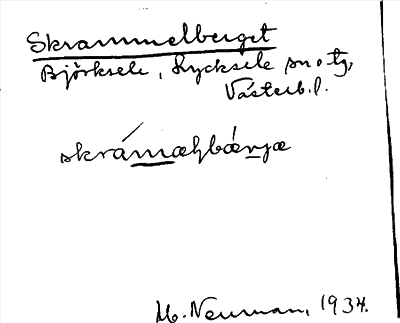 Skrammelberget
Björksele, Lycksele sn o tg,
Västerb. l.
skrámæḷbǽrjæ
M. Neuman, 1934.